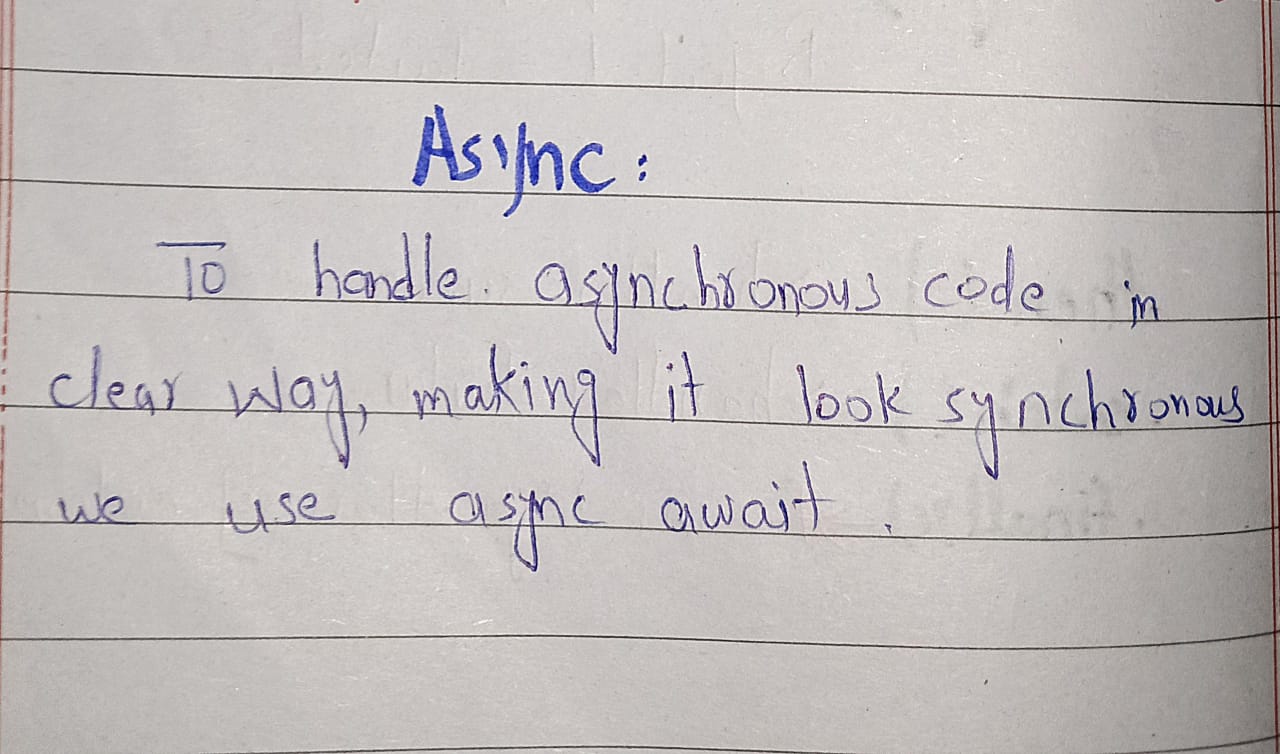 Async:
To handle. asynchronous code in
clear way, making it look synchronous
we use async await.